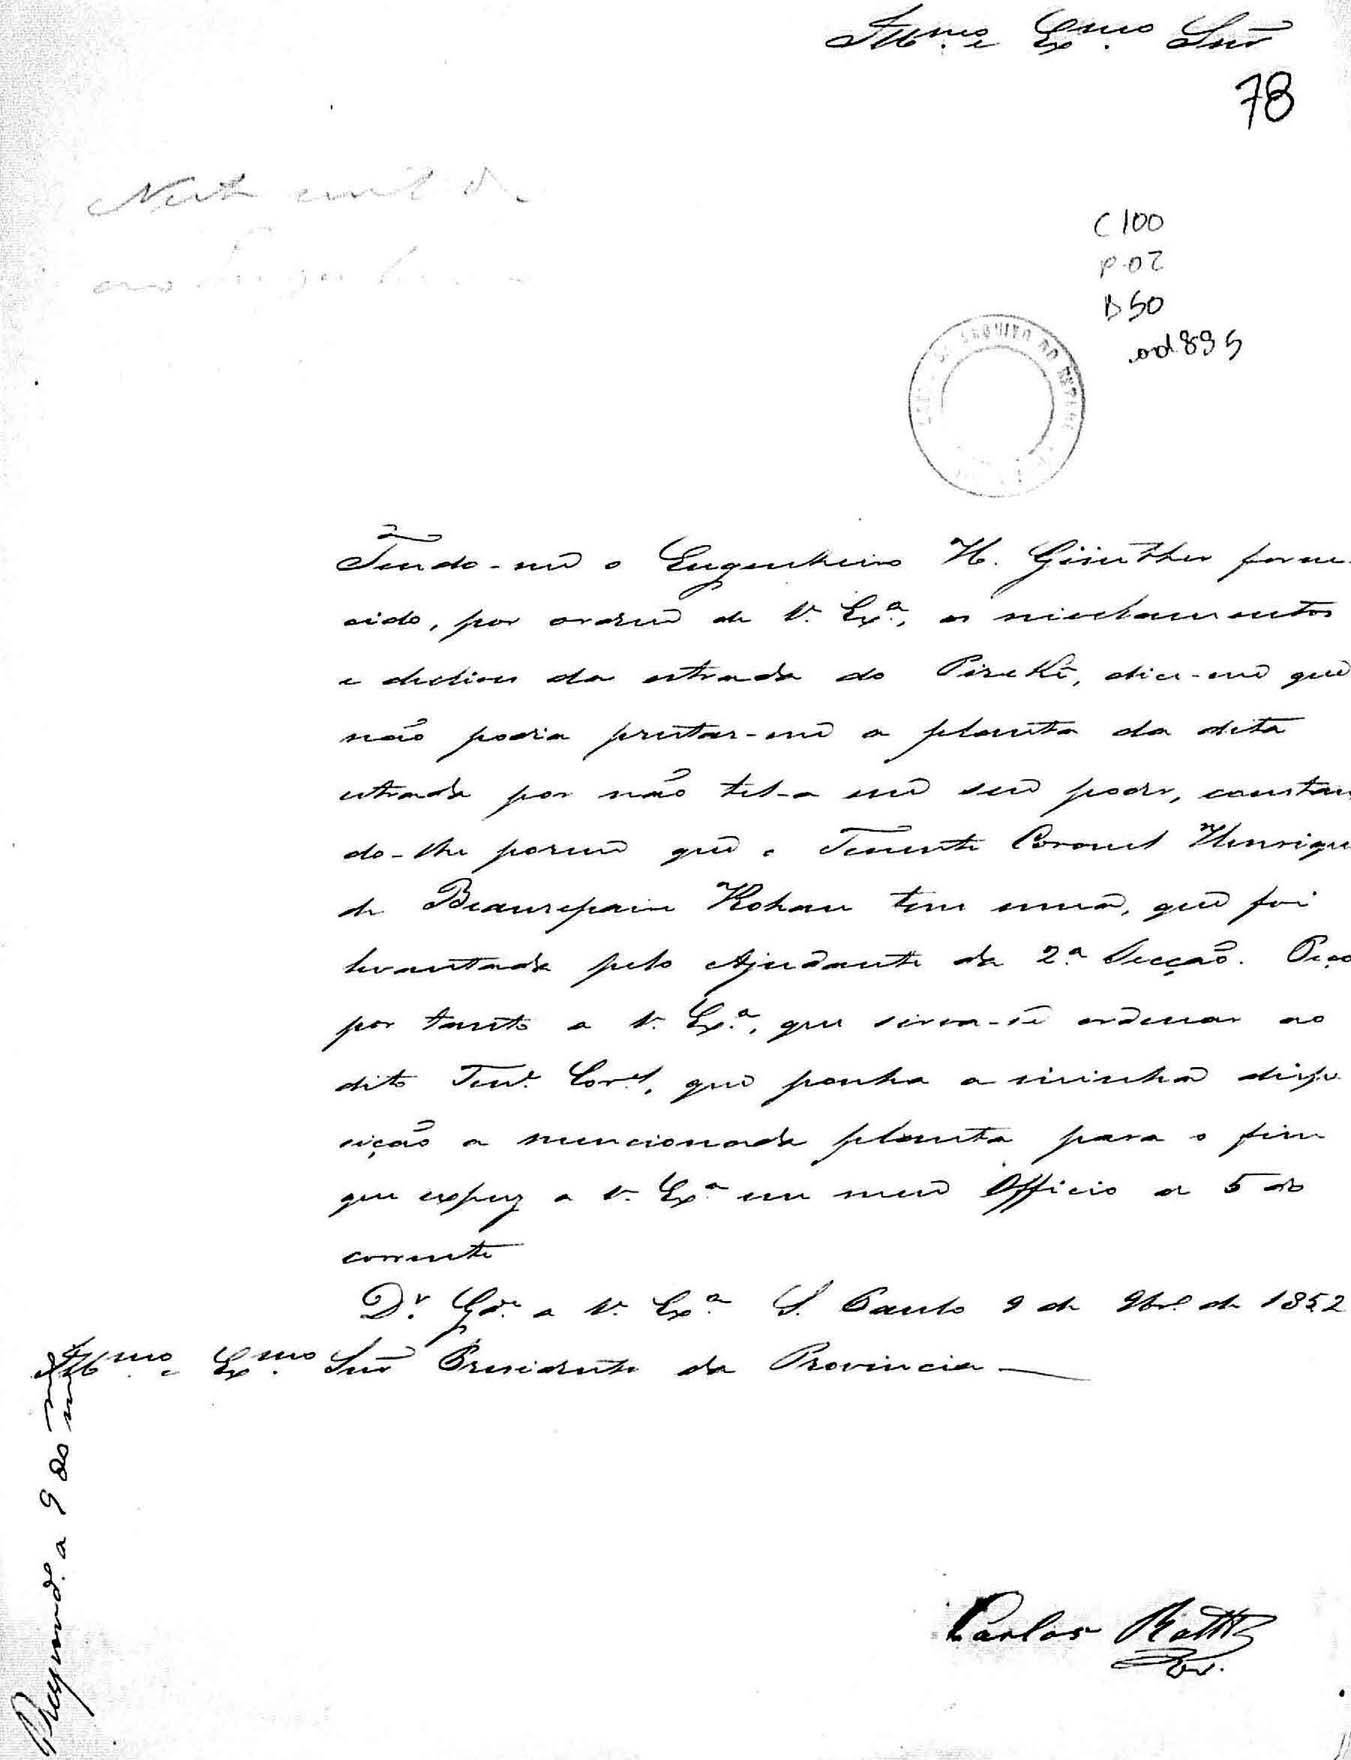 Ill.mo e Ex.mo Snr
78
C 100
P. 02
D 50
od 895
ARQUIVO DO ESTADO
Tendo-me o Engenheiro H. Günther forne
cido, por ordem de V. Ex.ª, os nivelamentos
e declives da estrada do Pireki, dice-me que
não podia prestar-me a planta da dita
estrada por não tel-a em seu poder, constan
do-lhe porem que o Tenente Coronel Henrique
de Beaurepaire Rohan tem uma, que foi
levantada pelo Ajudante da 2.ª Secção. Peço
por tanto a V. Ex.ª, que sirva-se ordenar ao
dito Ten.e Cor.el, que ponha a minha dispo
sição a mencionada planta para o fim
que expuz a V. Ex.ª em meu Officio de 5 do
corrente
D.s G.de a V. Ex.ª S. Paulo 9 de 9br.o de 1852
Ill.mo e Ex.mo Snr Presidente da Provincia
a 9 do
Carlos Rath
Dr.